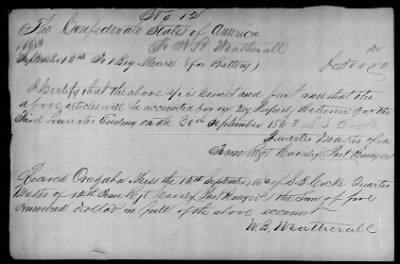 No. 12
The Confederate States of America
1863 To W. B. Weatherall Dr
September 15th To 1 Bay Mare (for Battery) $500.00
I certify that the above a/c is correct and just and that the
above articles will be accounted for on my Property Return for the
Third Quarter Ending on the 30th September 1863 S. B. Cocke
Quarter Master of 12
Tenn Regt Cavalry Part Rangers
Received Miss the 15th September 1863 of S. B. Cocke Quarter
Master of 12th Tenn Regt Cavalry Part Rangers the Sum of five
hundred Dollars in full of the above account
W. B. Weatherall